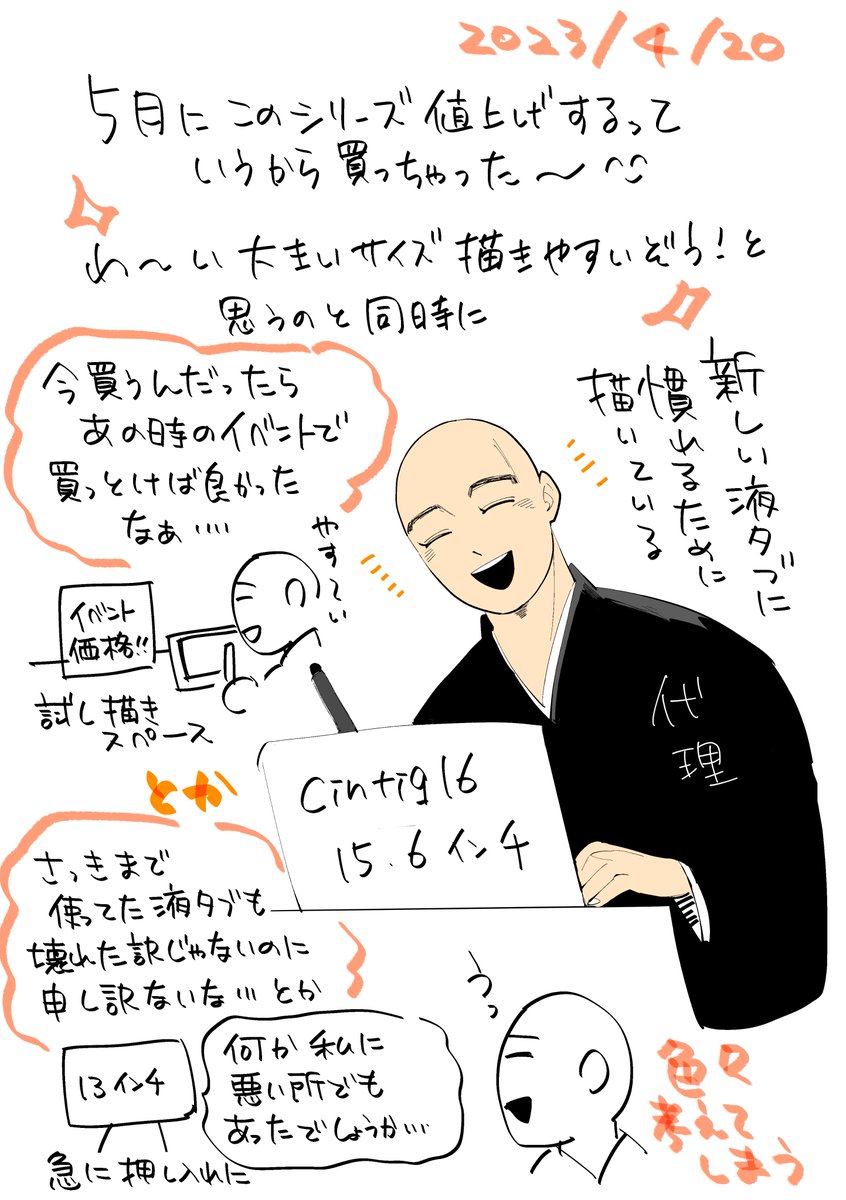 2023/4/20
5月にこのシリーズ値上げするって
いうから買っちゃった〜
わ〜い大きいサイズ描きやすいぞう!と
思うのと同時に
新しい液タブに
慣れるために
描いている
今買うんだったら
あの時のイベントで
買っとけば良かった
なぁ‥‥
やすてい
イベント
価格!!
試し描き
スペース
代
理
Cintiq16
15.6インチ
とか
さっきまで
使ってた液タブも
壊れた訳じゃないのに
申し訳ないな…とか
13インチ
急に押し入れに
何か私に
悪い所でも
あったでしょうか…
うっ
色々
考えて
しまう